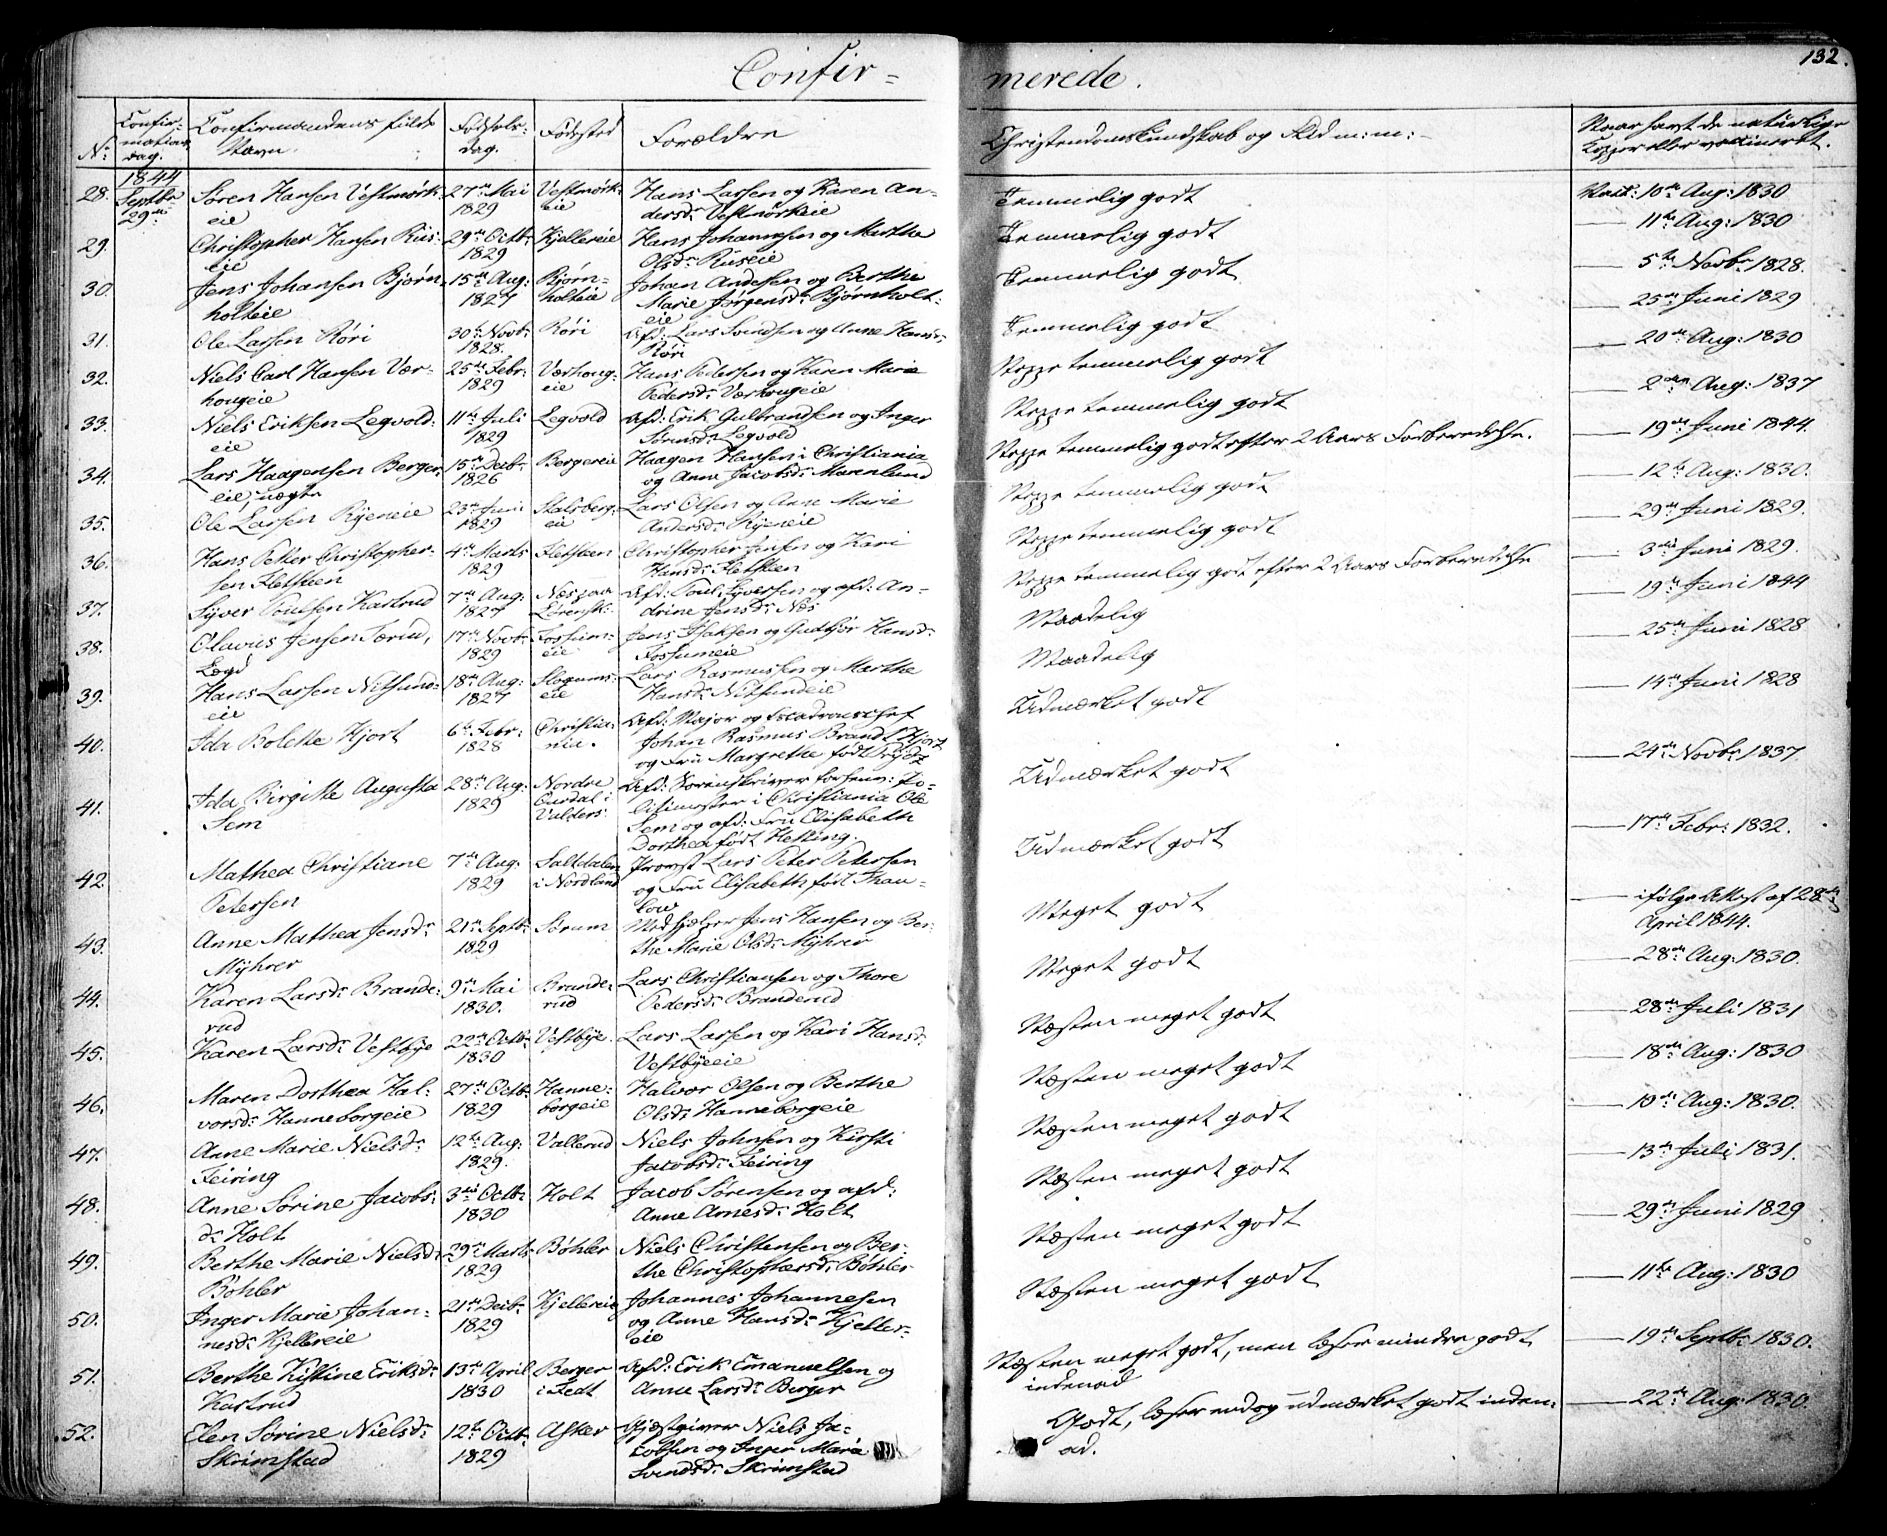 132.
Confir= merede.
No Confirmations dag. Confirmandens fulde Navn. Fødselsdag. Fødested Forældre Christendomskundskab og Flid m: m: Naar havt de naturlige Kopper eller vaccineret.
1844
Septbr 29de
28. Søren Hansen Vestmørkeie 27de Mai 1829 Vestmørkeie Hans Larsen og Karen Andersdr Vestmørkeie Temmelig godt Vacc: 10de Aug: 1830
29. Christopher Hansen Ruseie 29de Octbr 1829 Kjellereie Hans Johannesen og Marthe Olsdr Ruseie Temmelig godt — 11te Aug: 1830
30. Jens Johansen Bjørnholteie 15de Aug: 1827 Bjørnholteie Johan Andersen og Berthe Marie Jørgensdr Bjørnholteie Temmelig godt — 5te Novbr 1828.
31. Ole Larsen Røri 30te Novbr 1828. Røri Afd: Lars Svendsen og Anne Hansdr Røri Temmelig godt — 25de Juni 1829
32. Niels Carl Hansen Værhougeie 25de Febr: 1829 Værhougeie Hans Pedersen og Karen Marie Pedersdr Værhougeie Neppe temmelig godt — 20de Aug: 1830
33. Niels Eriksen Legvoldeie 11te Juli 1829 Legvold Afd: Erik Gulbrandsen og Inger Sørensdr Legvold Neppe temmelig godt — 2den Aug: 1837
34. Lars Haagensen Bergereie, uægte 15de Decbr 1826 Bergereie Haagen Hansen i Christiania og Anne Jacobsdr Marenlund Neppe temmelig godt efter 2 Aars Forberedelse. — 19de Juni 1844.
35. Ole Larsen Ryeneie 23de Juni 1829 Stalsbergeie Lars Olsen og Ane Marie Andersdr Ryeneie Neppe temmelig godt — 12te Aug: 1830.
36. Hans Petter Christophersen Fletskeen 4de Marts 1829 Fletskeen Christopher Jensen og Kari Hansdr Fletskeen Neppe temmelig godt — 29de Juni 1829.
— 3die Juni 1829.
37. Syver Poulsen Kastrud 7de Aug: 1827 Afd: Poul Syversen og afd: Andrine Jensdr Næs Neppe temmelig godt efter 2 Aars Forberedelse — 19de Juni 1844
38. Olavius Jensen Tærud, Lægd 17de Novbr 1829 Fossumeie Jens Isaksen og Gudbjør Hansdr Fossumeie Maadelig — 25de Juni 1828
39. Hans Larsen Nitsundeie 18de Aug: 1827 Slogumseie Lars Rasmussen og Marthe Hansdr Nitsundeie Maadelig — 14de Juni 1828
40. Ida Bolette Hjort 6te Febr: 1828 Christiania. Afd: Major og Escadronschef Johan Rasmus Brandt Hjort og Fru Margrethe født Trydz Udmærket godt — 24de Novbr 1837
41. Ida Birgitte Augusta Sem 28de Aug: 1829 Nordre Ourdal i Valders. Afd: Sorenskriver forhenv: Politimester i Christiania Ole Sem og afd: Fru Elisabeth Dorthea født Hetting. Udmærket godt — 17de Febr: 1832.
42. Mathea Christiane Petersen 7de Aug. 1829 Saltdalen i Nordland Provst Lars Peter Petersen og Fru Elisabeth, født Thaulow Udmærket godt — ifølge Attest af 28de April 1844.
43. Anne Mathea Jensdr Myhrer 21de Septbr 1829 Sørum Medhjælper Jens Hansen og Berthe Marie Olsdr Myhrer Meget godt — 28de Aug: 1830.
44. Karen Larsdr Branderud 9de Mai 1830. Branderud Lars Christiansen og Thore Pedersdr Branderud Meget godt — 28de Juli 1831
45. Karen Larsdr Vestbye 22de Octbr 1830 Vestbye. Lars Larsen og Kari Hansdr Vestbyeeie Næsten meget godt — 18de Aug: 1830
46. Maren Dorthea Halvorsdr Hanneborgeie 27de Octbr 1829 Hanneborgeie Halvor Olsen og Berthe Olsdr Hanneborgeie Næsten meget godt — 10de Aug: 1830.
47. Anne Marie Nielsdr Feiring 12te Aug: 1829. Vallerud Niels Johnsen og Kirsti Jacobsdr Feiring Næsten meget godt — 13de Juli 1831.
48. Anne Sørine Jacobsdr Holt 3die Octbr 1830 Holt Jacob Sørensen og afd: Anne Arnesdr Holt Næsten meget godt — 29de Juni 1829
49. Berthe Marie Nielsdr Bøhler 29de Marts 1829 Bøhler Niels Christensen og Berthe Christophersdr Bøhler Næsten meget godt — 11te Aug: 1830
50. Inger Marie Johannesdr Kjellereie 21de Decbr 1829 Kjellereie Johannes Johannesen og Anne Hansdr Kjellereie Næsten meget godt
51. Berthe Kistine Eriksdr Kastrud 13de April 1830 Berger i Fedt Afd: Erik Emanuelsen og Anne Larsdr Berger Næsten meget godt, men læser mindre godt indenad — 19de Septbr 1830.
52. Elen Sørine Nielsdr Skrimstad 12te Octbr 1829 Asker Gjæstgiver Niels Jacobsen og Inger Marie Svendsdr Skrimstad Godt, læser endog udmærket godt indenad. — 22de Aug: 1830.